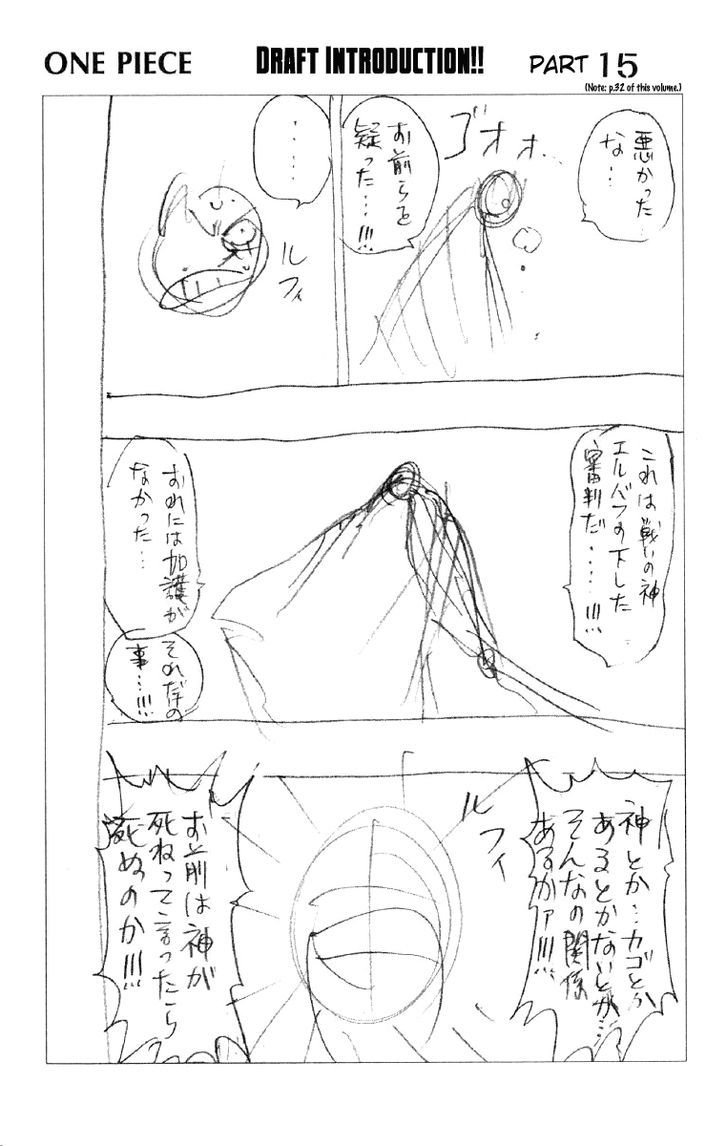 ONE PIECE DRAFT INTRODUCTION!! PART 15
(Note: p.32 of this volume.)
悪かった
な…
ゴオォ…
お前らを
疑った…!!!
‥‥
ルフィ
これは戦いの神
エルバフの下した
審判だ‥‥!!!
おれには加護が
なかった…
それだけの
事…!!!
神とか…カゴとか
あるとかないとか…
そんなの関係
あるかァ!!!
ルフィ
お前は神が
死ねって言ったら
死ぬのか!!!